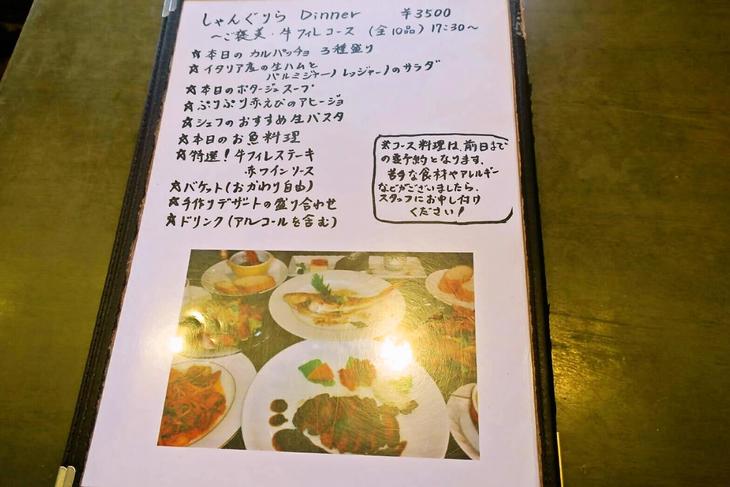 しゃんぐりら Dinner ¥3500
～ご褒美・牛フィレコース(全10品)17:30～
☆本日のカルパッチョ3種盛り
☆イタリア産の生ハムと
パルミジャーノレッジャーノのサラダ
☆本日のポタージュスープ
☆ぷりぷり赤えびのアヒージョ
☆シェフのおすすめ生パスタ
☆本日のお魚料理
☆特選!牛フィレステーキ
赤ワインソース
☆バケット(おかわり自由)
☆手作りデザートの盛り合わせ
☆ドリンク(アルコールを含む)
※コース料理は、前日まで
の要予約となります。
苦手な食材やアレルギー
などがございましたら、
スタッフにお申し付け
ください!